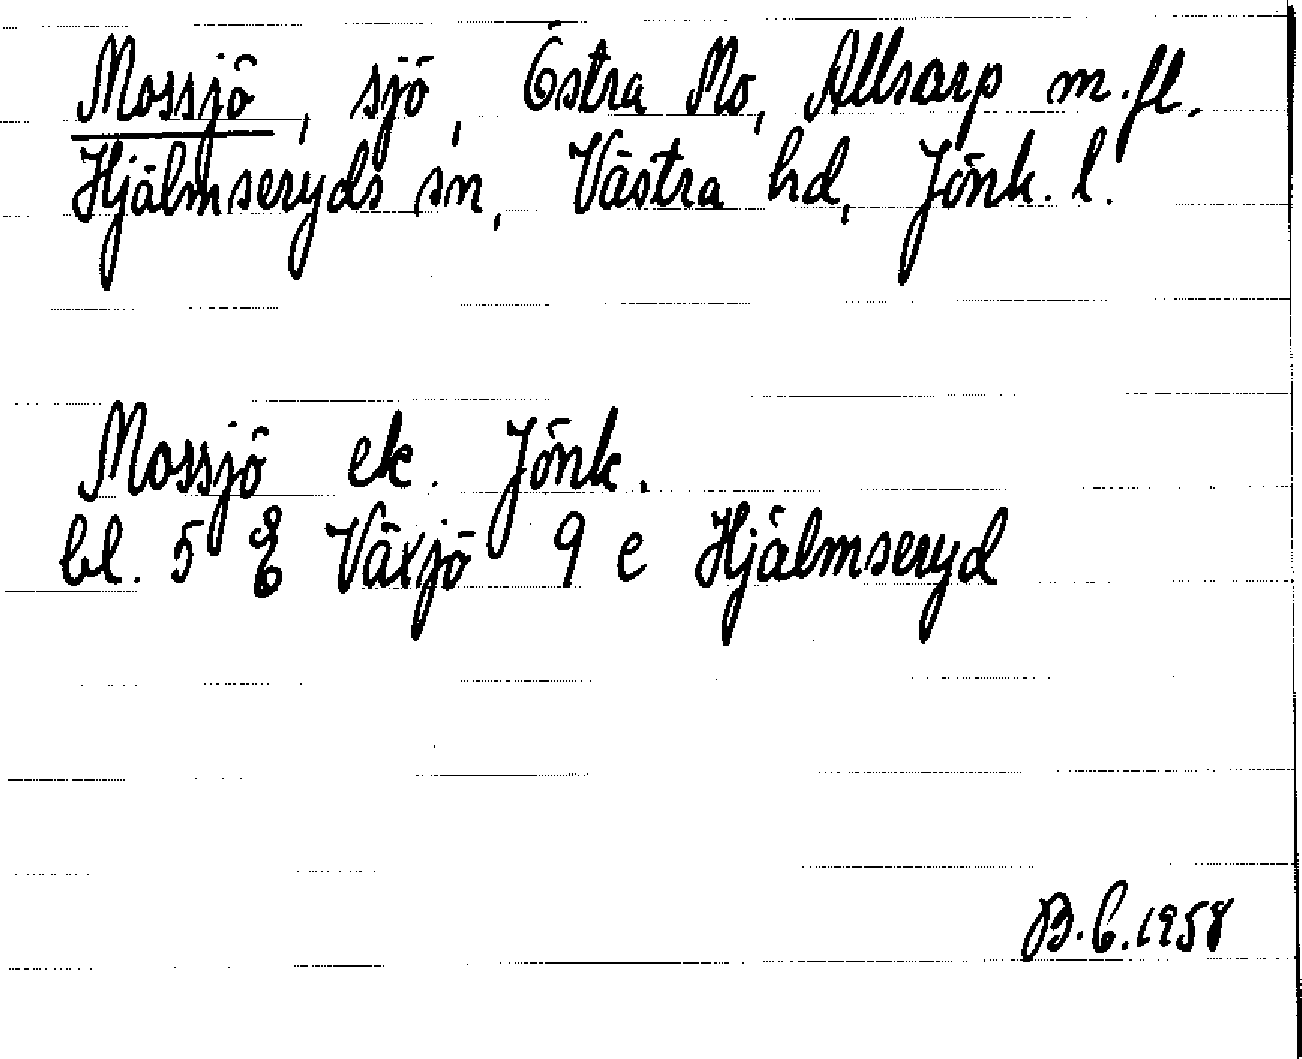 Mossjö, sjö, Östra Mo, Allsarp m.fl.
Hjälmseryds sn, Västra hd, Jönk. l.
Mossjö ek. Jönk.
bl. 5 E Växjö 9 e Hjälmseryd
B.C.1958